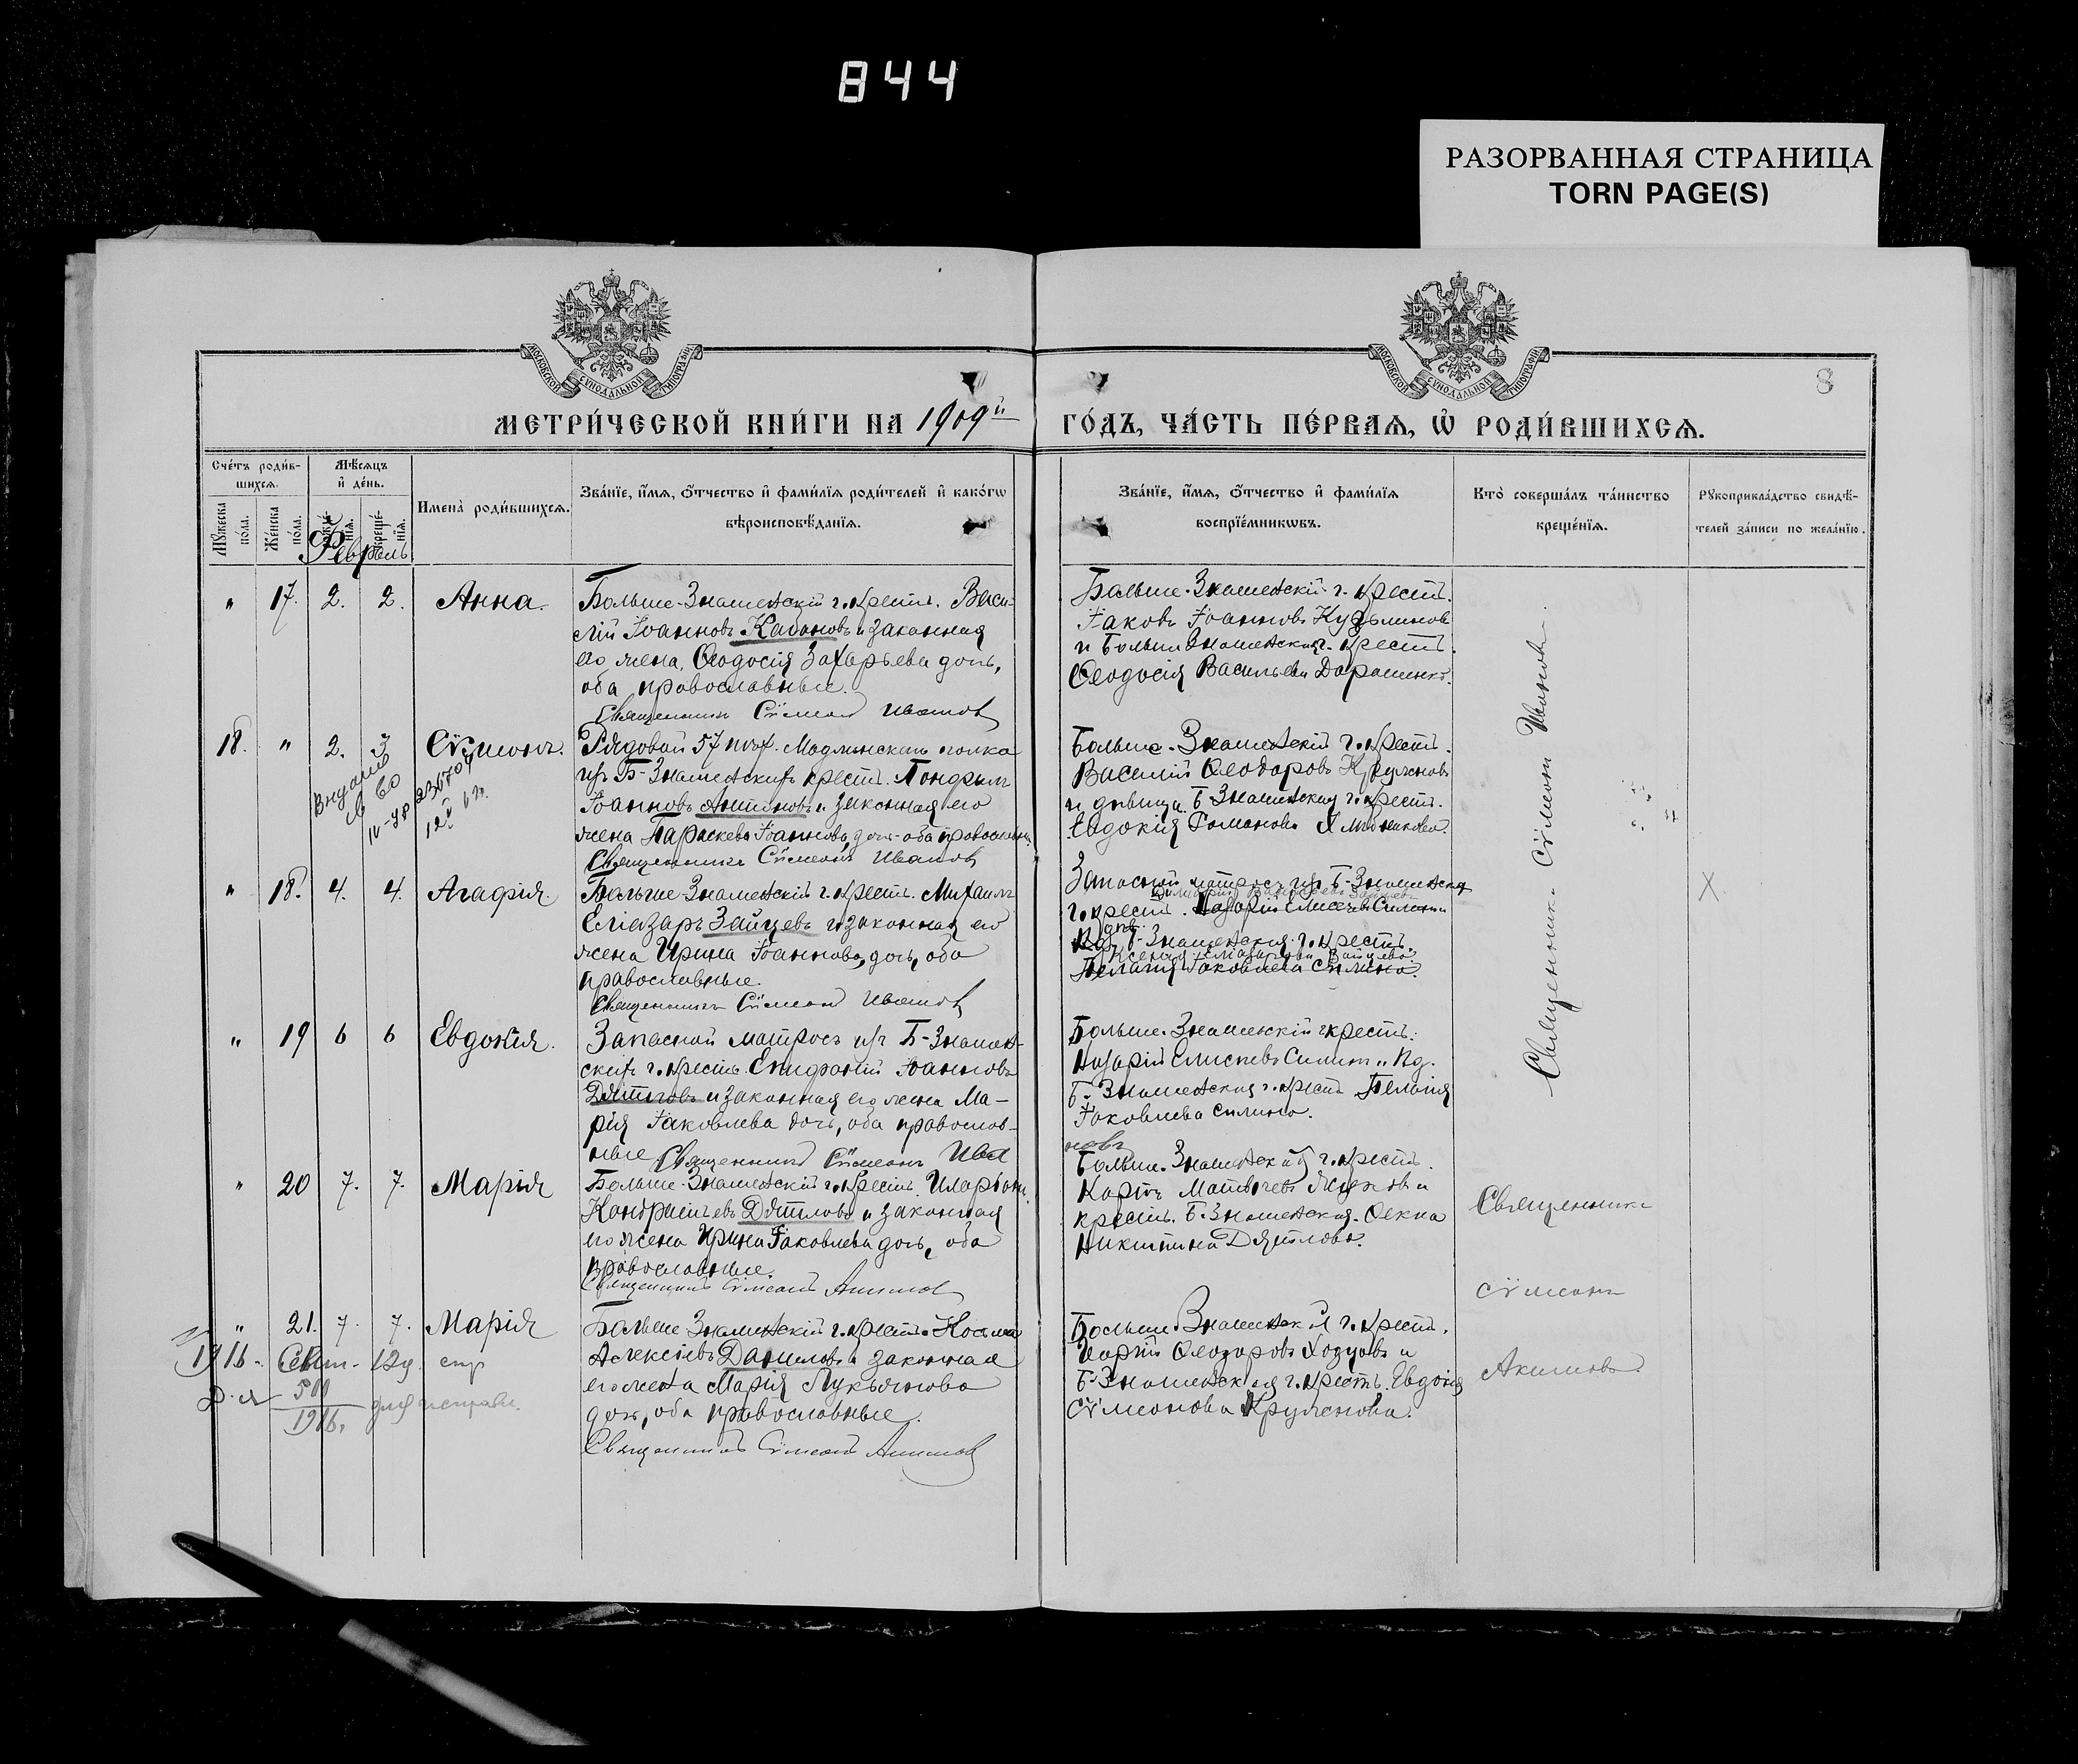 844
РАЗОРВАННАЯ СТРАНИЦА
TORN PAGE(S)
МОСКОВСКОЙ СУНОДАЛЬНОЙ ТИПОГРАФІИ
МОСКОВСКОЙ СУНОДАЛЬНОЙ ТИПОГРАФІИ
8
МЕТРИ́ЧЕСКОЙ КНИ́ГИ НА 1909й ГО́ДЪ, ЧА́СТЬ ПЕ́РВАЯ, Ѡ РОДИ́ВШИХСЯ.
Сче́тъ роди́в-
шихся.
Мѣ́сяцъ
и҆ де́нь.
Му́жеска по́ла.
Же́нска по́ла.
креще́-
нїя.
Имена̀ роди́вшихся.
Зва́нїе, и҆́мя, ѻ҆́тчество и҆ фами́лїя роди́телей и҆ како́гѡ
вѣроисповѣ́данїя.
Зва́нїе, и҆́мя, ѻ҆́тчество и҆ фами́лїя
воспрїе́мникѡвъ.
Кто̀ соверша́лъ та́инство
креще́нїя.
Рꙋкоприкла́дство свидѣ́-
телей за́писи по жела́нїю.
Февраль
" 17. 2. 2. Анна.
Больше-Знаменскій г. крест. Васи-
лій Іоанновъ Кабановъ и законная
его жена Ѳеодосія Захарьева дочь,
оба православные.
Священникъ Сѵмеонъ Иванов
Больше-Знаменскій г. крест.
Іаковъ Іоанновъ Кузьминов
и Больше Знаменская г. крест.
Ѳеодосія Васильева Дорошенко.
18. " 2. 3 Сѵмеонъ.
Рядовой 57 пѣх. Модлинскаго полка
изъ Б-Знаменскихъ крест.
Іоанновъ Антоновъ и законная его
жена Параскева Іоаннова дочь - оба православн.
Священникъ Сѵмеонъ Иванов
Больше-Знаменскій г. крест.
Василій Ѳеодоровъ Кружновъ
и дѣвица Б Знаменская г. крест.
Евдокія Романова
" 18. 4. 4. Агафія.
Больше-Знаменскій г. крест. Михаилъ
Еліазаръ Зайцевъ и законная его
жена Ирина Іоаннова, дочь, оба
православные.
Священникъ Сѵмеонъ Иванов
Запасной матросъ изъ Б-Знаменских
г. крест. Назарій Елисеевъ Силинъ
Б-Знаменская г. крест.
Ксенія Еліазарова Зайцева
Пелагія Іаковлева Силина.
X
" 19 6 6 Евдокія.
Запасной матросъ изъ Б-Знамен-
скихъ г. крест. Епифаній Іоанновъ
Дятловъ и законная его жена Ма-
рія Іаковлева дочь, оба православ-
ные Священникъ Сѵмеонъ Ива
новъ
Больше-Знаменскій г. крест.
Назарій Елисеевъ Силинъ и
Б-Знаменская г. крест. Пелагія
Іаковлева Силина.
Священникъ Сѵмеонъ Ивановъ.
" 20 7. 7. Марія
Больше-Знаменскій г. крест. Иларіонъ
Кондратьевъ Дятловъ и законная
его жена Ирина Іаковлева дочь, оба
православные.
Священникъ Сѵмеонъ Акимов
Больше-Знаменскій г. крест.
Карпъ Матвѣевъ
крест. Б-Знаменская Ѳекла
Никитина Дятлова.
Священникъ
Сѵмеонъ
Акимовъ.
" 21. 7. 7. Марія
Больше Знаменскій г. крест. Косьма
Алексѣевъ Даниловъ и законная
его жена Марія Лукьянова
дочь, оба православные.
Священникъ Сѵмеонъ Акимов
Больше-Знаменскій г. крест.
Карпъ Ѳеодоровъ Ходусовъ и
Б-Знаменская г. крест. Евдокія
Сѵмеонова Кружнова.
1916. Сент. 12
1916.